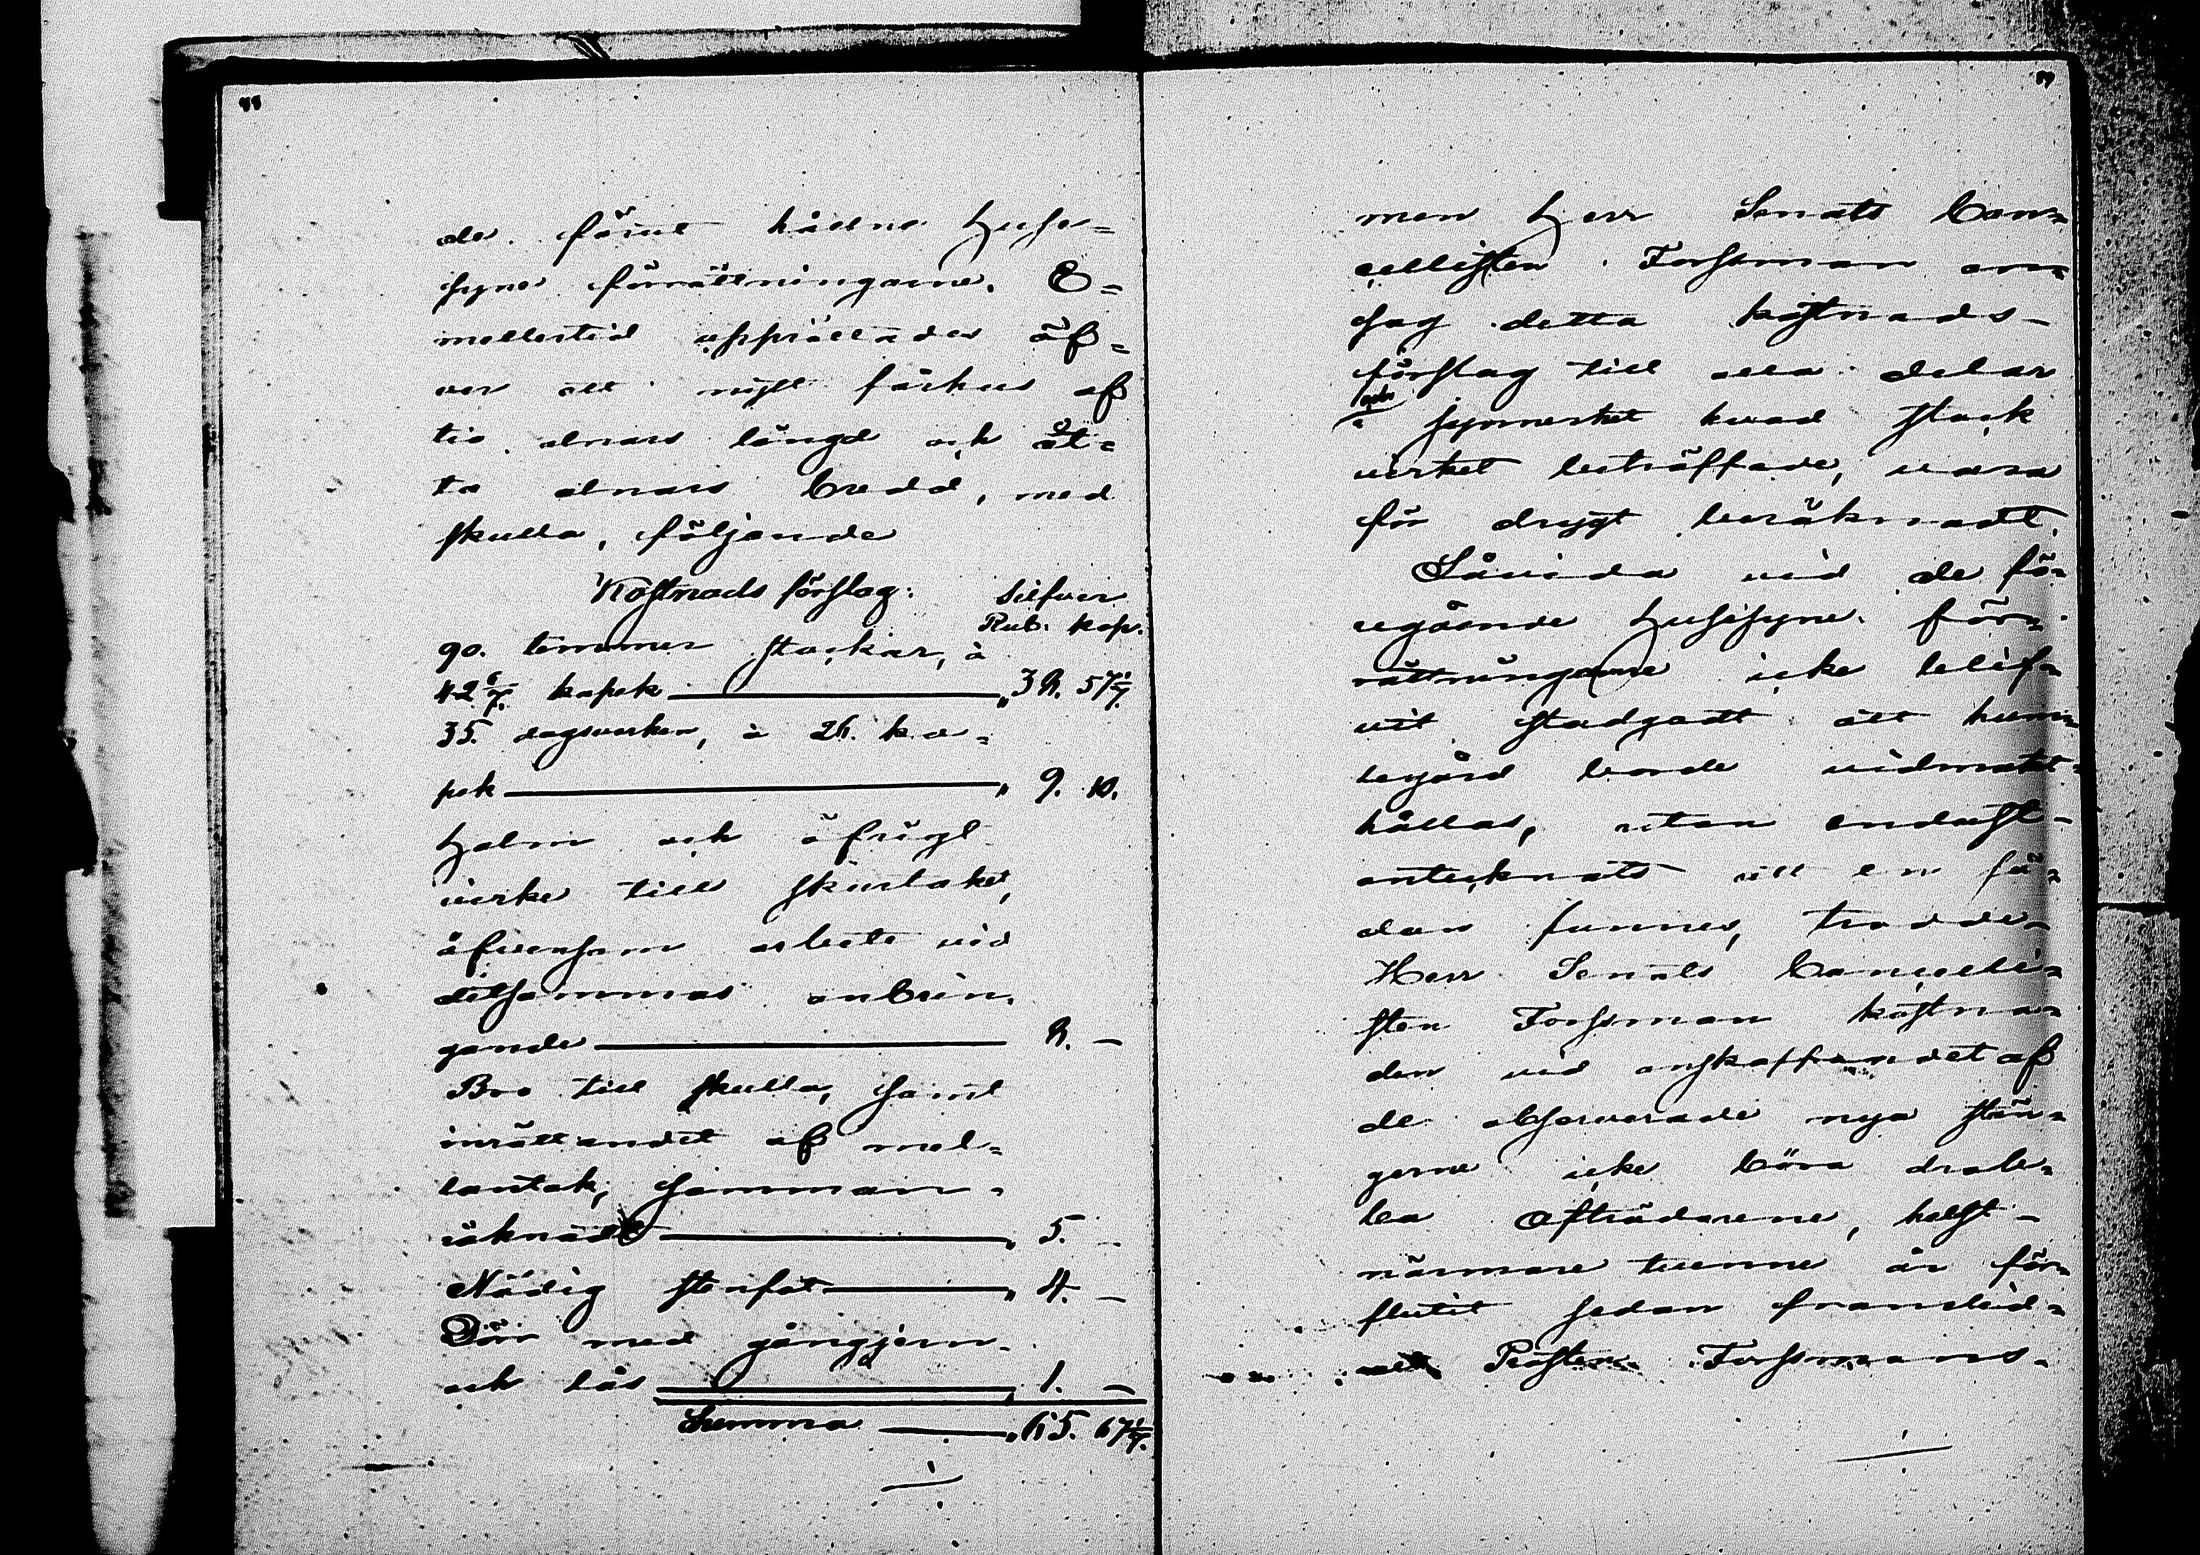 de förut hållne Huse-
syne förrättningarne. E=
mellertid upprättades öf=
ver ett nytt fårhus af
tio alnars längd och åt=
ta alnars bredd, med
skulla, följande
Kostnads förslag: Silfver
Rub. kop.
90. timmer stockar, à
42 6/7. kopek „ 38. 57 1/7.
35. dagsverken, à 26. ko=
pek „ 9. 10.
Halm och öfrigt
virke till skurtaket,
äfvensom arbete vid
detsammas anbrin=
gande 8. —
Bro till skulla, samt
inrättandet af mel=
lantak, samman=
räknadt „ 5. —
Nödig stenfot „ 4. —
Dörr med gångjern
och lås „ 1. —
Summa „ 65. 67 1/7.
men Herr Senats Can=
cellisten Forssman an=
såg detta kostnads-
förslag till alla delar
och
i synnerhet hvad stock
virket beträffade, vara
för drygt beräknadt.
Såvida vid de fö=
regående Husesyne för=
rättningarne icke blif=
vit stadgadt att hum=
legård borde vidmakt=
hållas, utan endast
antecknats att en så=
dan funnes, trodde
Herr Senats Cancelli=
sten Forssman kostna=
den vid anskaffandet af
de observerade nya stän=
gerne icke böra drab=
ba Afträdarene, helst
närmare tvenne år för=
flutit sedan framlid=
Prosten Forssmans